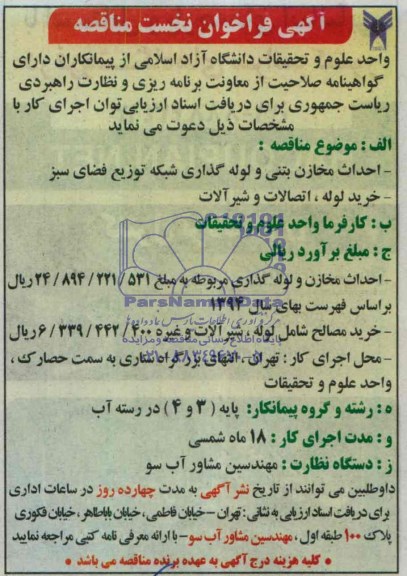 آگهی فراخوان نخست مناقصه
واحد علوم و تحقیقات دانشگاه آزاد اسلامی از پیمانکاران دارای
گواهینامه صلاحیت از معاونت برنامه ریزی و نظارت راهبردی
ریاست جمهوری برای دریافت اسناد ارزیابی توان اجرای کار با
مشخصات ذیل دعوت می نماید
الف : موضوع مناقصه :
- احداث مخازن بتنی و لوله گذاری شبکه توزیع فضای سبز
- خرید لوله ، اتصالات و شیرآلات
ب : کارفرما واحد علوم و تحقیقات
ج : مبلغ برآورد ریالی
- احداث مخازن و لوله گذاری مربوطه به مبلغ ۲۴/۸۹۴/۲۲۱/۵۳۱ ریال
بر اساس فهرست بهای سال ۱۳۹۴
- خرید مصالح شامل لوله ، شیر آلات و غیره ۶/۳۳۹/۴۴۲/۴۰۰ ریال
- محل اجرای کار : تهران ، انتهای بزرگراه ستاری به سمت حصارک ،
واحد علوم و تحقیقات
ه : رشته و گروه پیمانکار: پایه ( ۳ و ۴ ) در رسته آب
و : مدت اجرای کار : ۱۸ ماه شمسی
ز : دستگاه نظارت : مهندسین مشاور آب سو
داوطلبین می توانند از تاریخ نشر آگهی به مدت چهارده روز در ساعات اداری
برای دریافت اسناد ارزیابی به نشانی : تهران - خیابان فاطمی ، خیابان باباطاهر ، خیابان فکوری
پلاک ۱۰۰ طبقه اول ، مهندسین مشاور آب سو - با ارائه معرفی نامه کتبی مراجعه نمایید
* کلیه هزینه درج آگهی به عهده برنده مناقصه می باشد *
ParsNamadData
پایگاه اطلاع رسانی مناقصه و مزایده